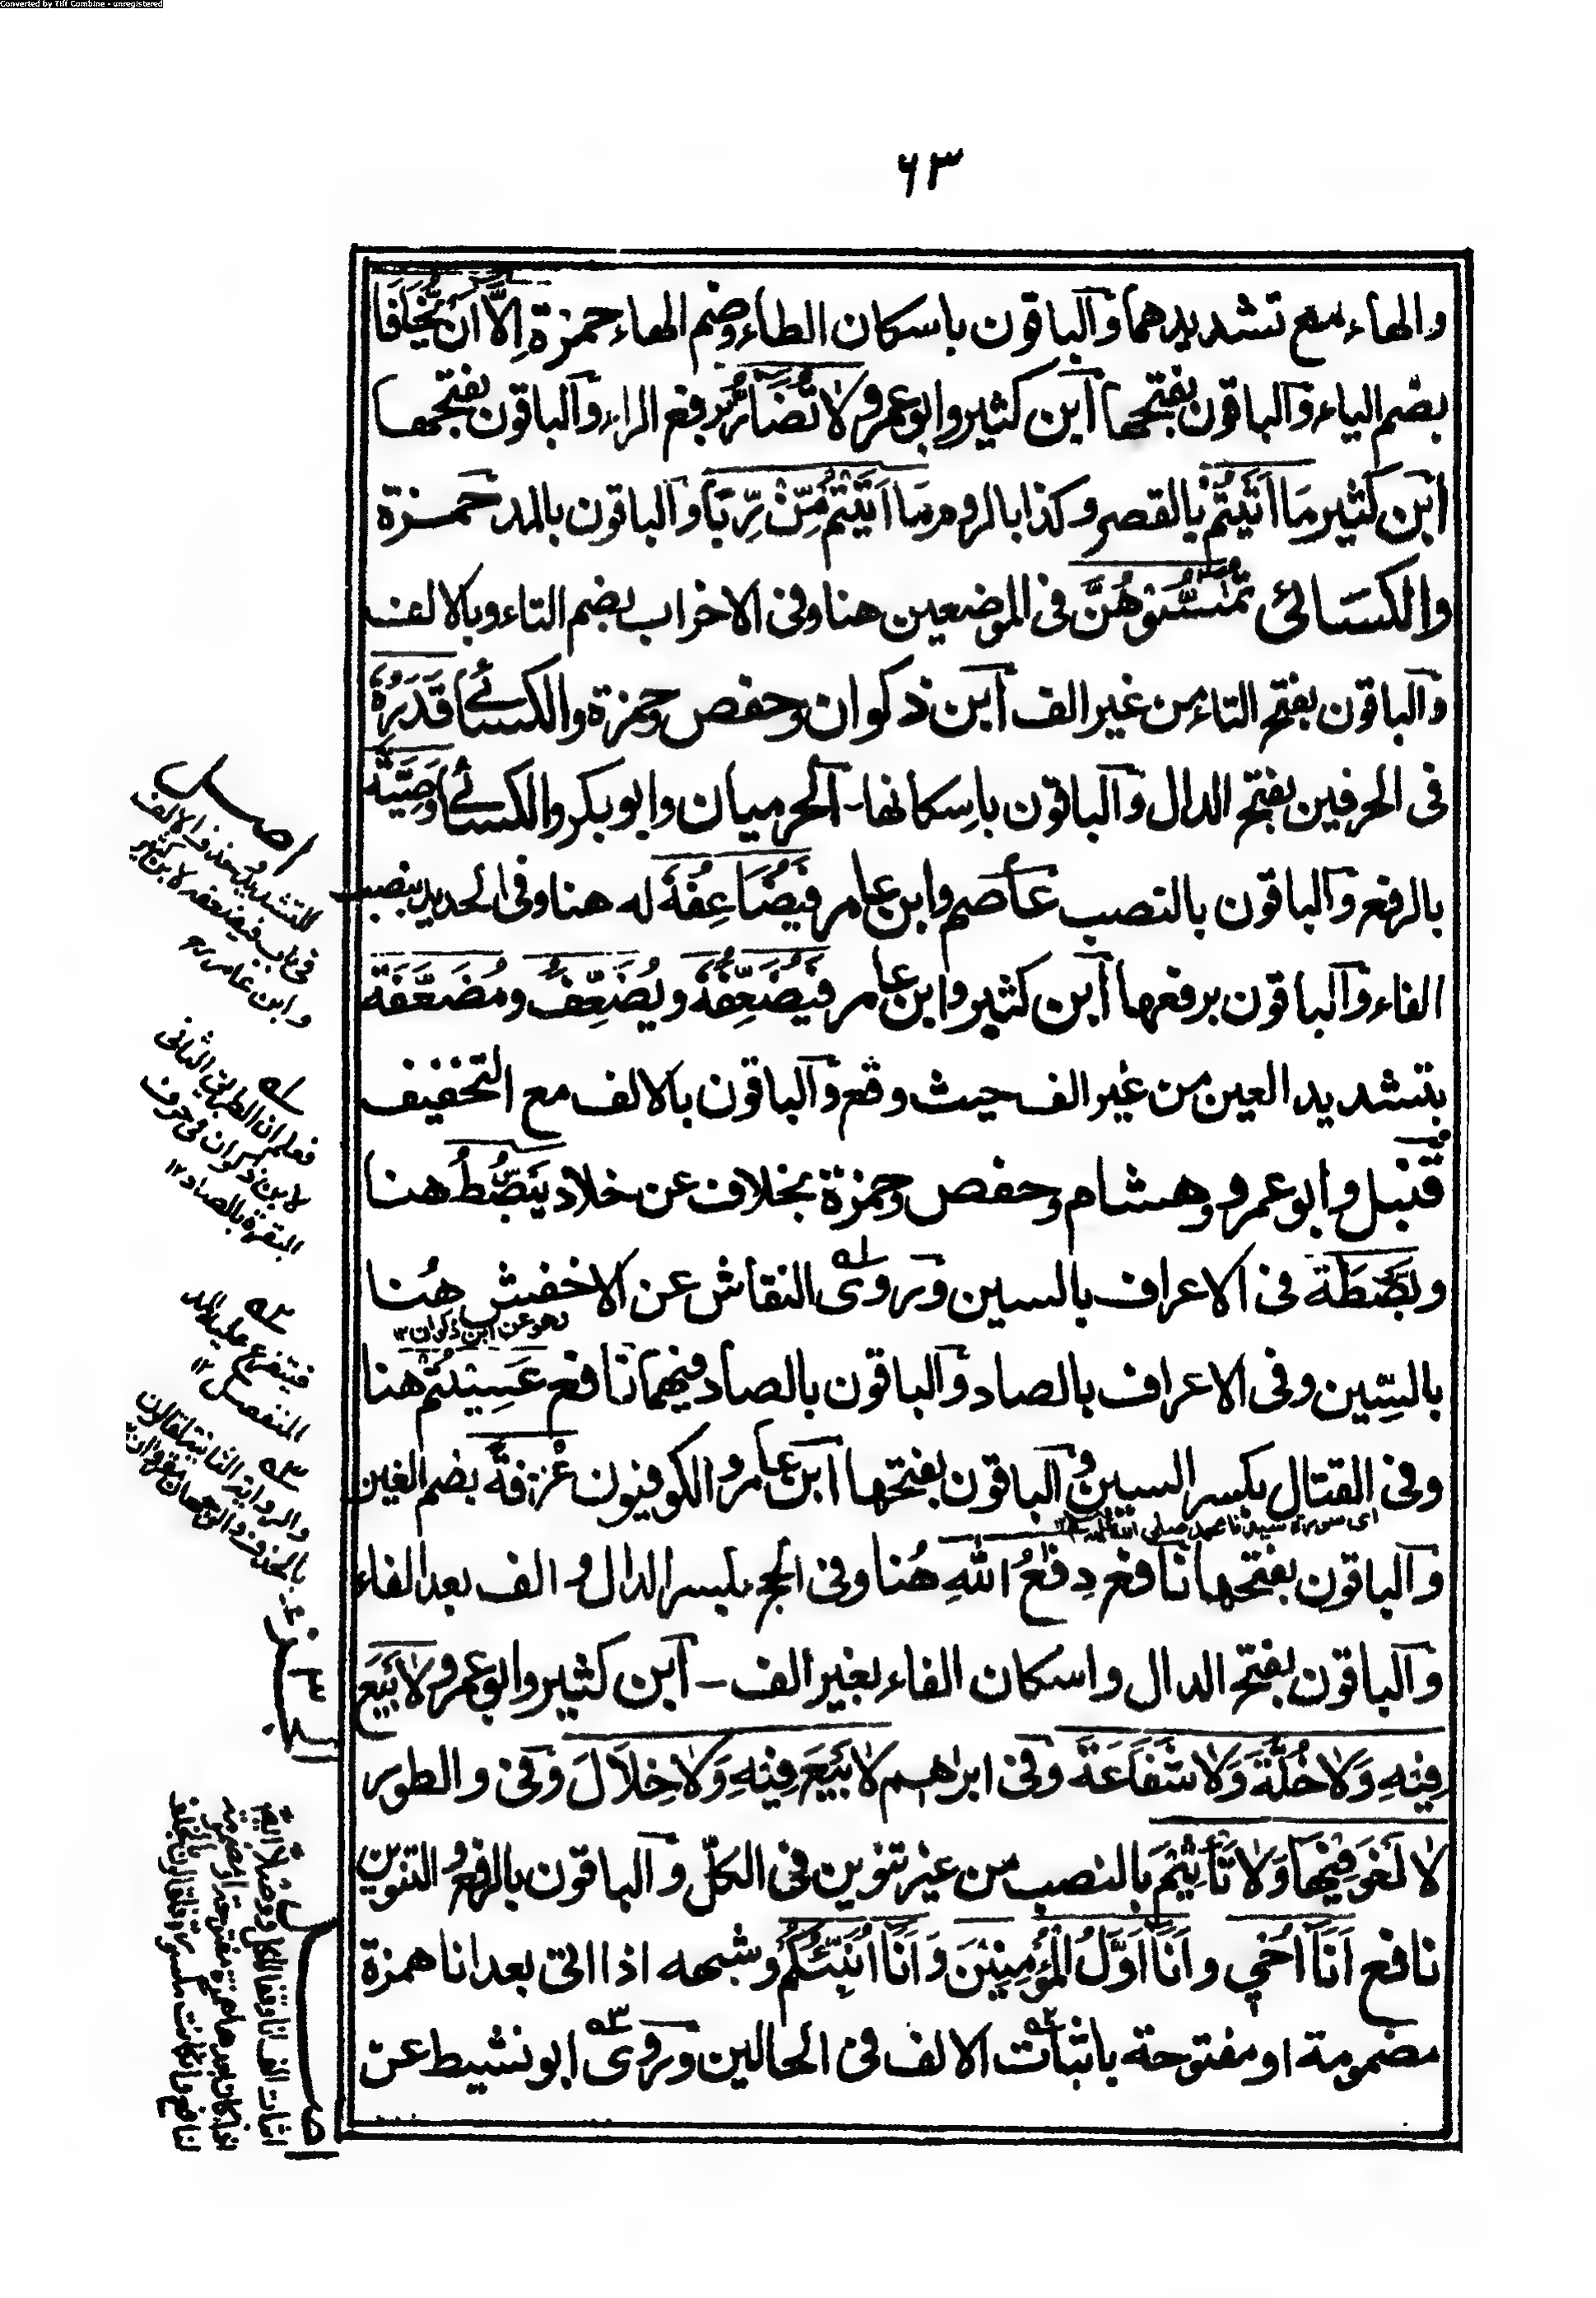 Converted by Tiff Combine - unregistered
٦٣
والهاء مع تشديدهما والباقون باسكان الطاء وضم الهاء حمزة اِلَّا اَنْ يُّخَافَا
بضم الياء والباقون بفتحها ابن كثير وابو عمرو لَا تُضَارُّ برفع الراء والباقون بفتحها
ابن كثير مَا اَتَيْتُمْ بالقصر وكذا بالروم مَا اَتَيْتُمْ مِّنْ رِّبًا والباقون بالمد حمزة
والكسائى تُمٰسُّوْهُنَّ فى الموضعين هنا وفى الاحزاب بضم التاء وبالالف
والباقون بفتح التاء من غير الف ابن ذكوان وحفص وحمزة والكسائى قَدَرُهٗ
فى الحرفين بفتح الدال والباقون باسكانها - الحرميان وابو بكر والكسائى وَصِيَّةٌ
بالرفع والباقون بالنصب عاصم وابن عامر فَيُضَاعِفَهٗ له هنا وفى الحديد بنصب
الفاء والباقون برفعها ابن كثير وابن عامر فَيُضَعِّفُهٗ ويُضَعِّفُ ومُضَعَّفَةً
بتشديد العين من غير الف حيث وقع والباقون بالالف مع التخفيف
قنبل وابو عمرو وهشام وحفص وحمزة بخلاف عن خلاد يَبْصُطُ هنا
وبَصْطَةً فى الاعراف بالسين وروى النقاش عن الاخفش هُنا
وهو عن ابن ذكوان ١٢
بالسِّين وفى الاعراف بالصاد والباقون بالصاد فيهما نافع عَسِيْتُمْ هنا
وفى القتال بكسر السين والباقون بفتحها ابن عامر والكوفيون غُرْفَةً بضم الغين
اى سورة سيدنا محمد صلى الله عليه
والباقون بفتحها نافع دِفٰعُ اللّٰهِ هُنا وفى الحج بكسر الدال والف بعد الفاء
والباقون بفتح الدال واسكان الفاء بغير الف - ابن كثير وابو عمرو لَا بَيْعَ
فِيْهِ وَلَا خُلَّةَ وَلَا شَفَاعَةَ وفى ابراهيم لَا بَيْعَ فِيْهِ وَلَا خِلَالَ وفى والطور
لَا لَغْوَ فِيْهَا وَلَا تَأْثِيْمَ بالنصب من غير تنوين فى الكلّ والباقون بالرفع والتنوين
نافع اَنَا اُحْيِي وانَا اَوَّلُ الْمُؤْمِنِيْنَ وَاَنَا اُنَبِّئُكُمْ وشبهه اذا اتى بعد انا همزة
مضمومة او مفتوحة باثبات الالف فى الحالين وروى ابو نشيط عن
للتشديد بحذف الالف
فى باب فيضعفه لابن كثير
وابن عامر
فعلم ان الطريق الثانى
لابن ذكوان فى حرف
البقرة بالصاد ١٢
فيتفرع عليه المد
المنفصل ١٢
والرواية الثانية لقالون
بالحذف والوجهان مقروان